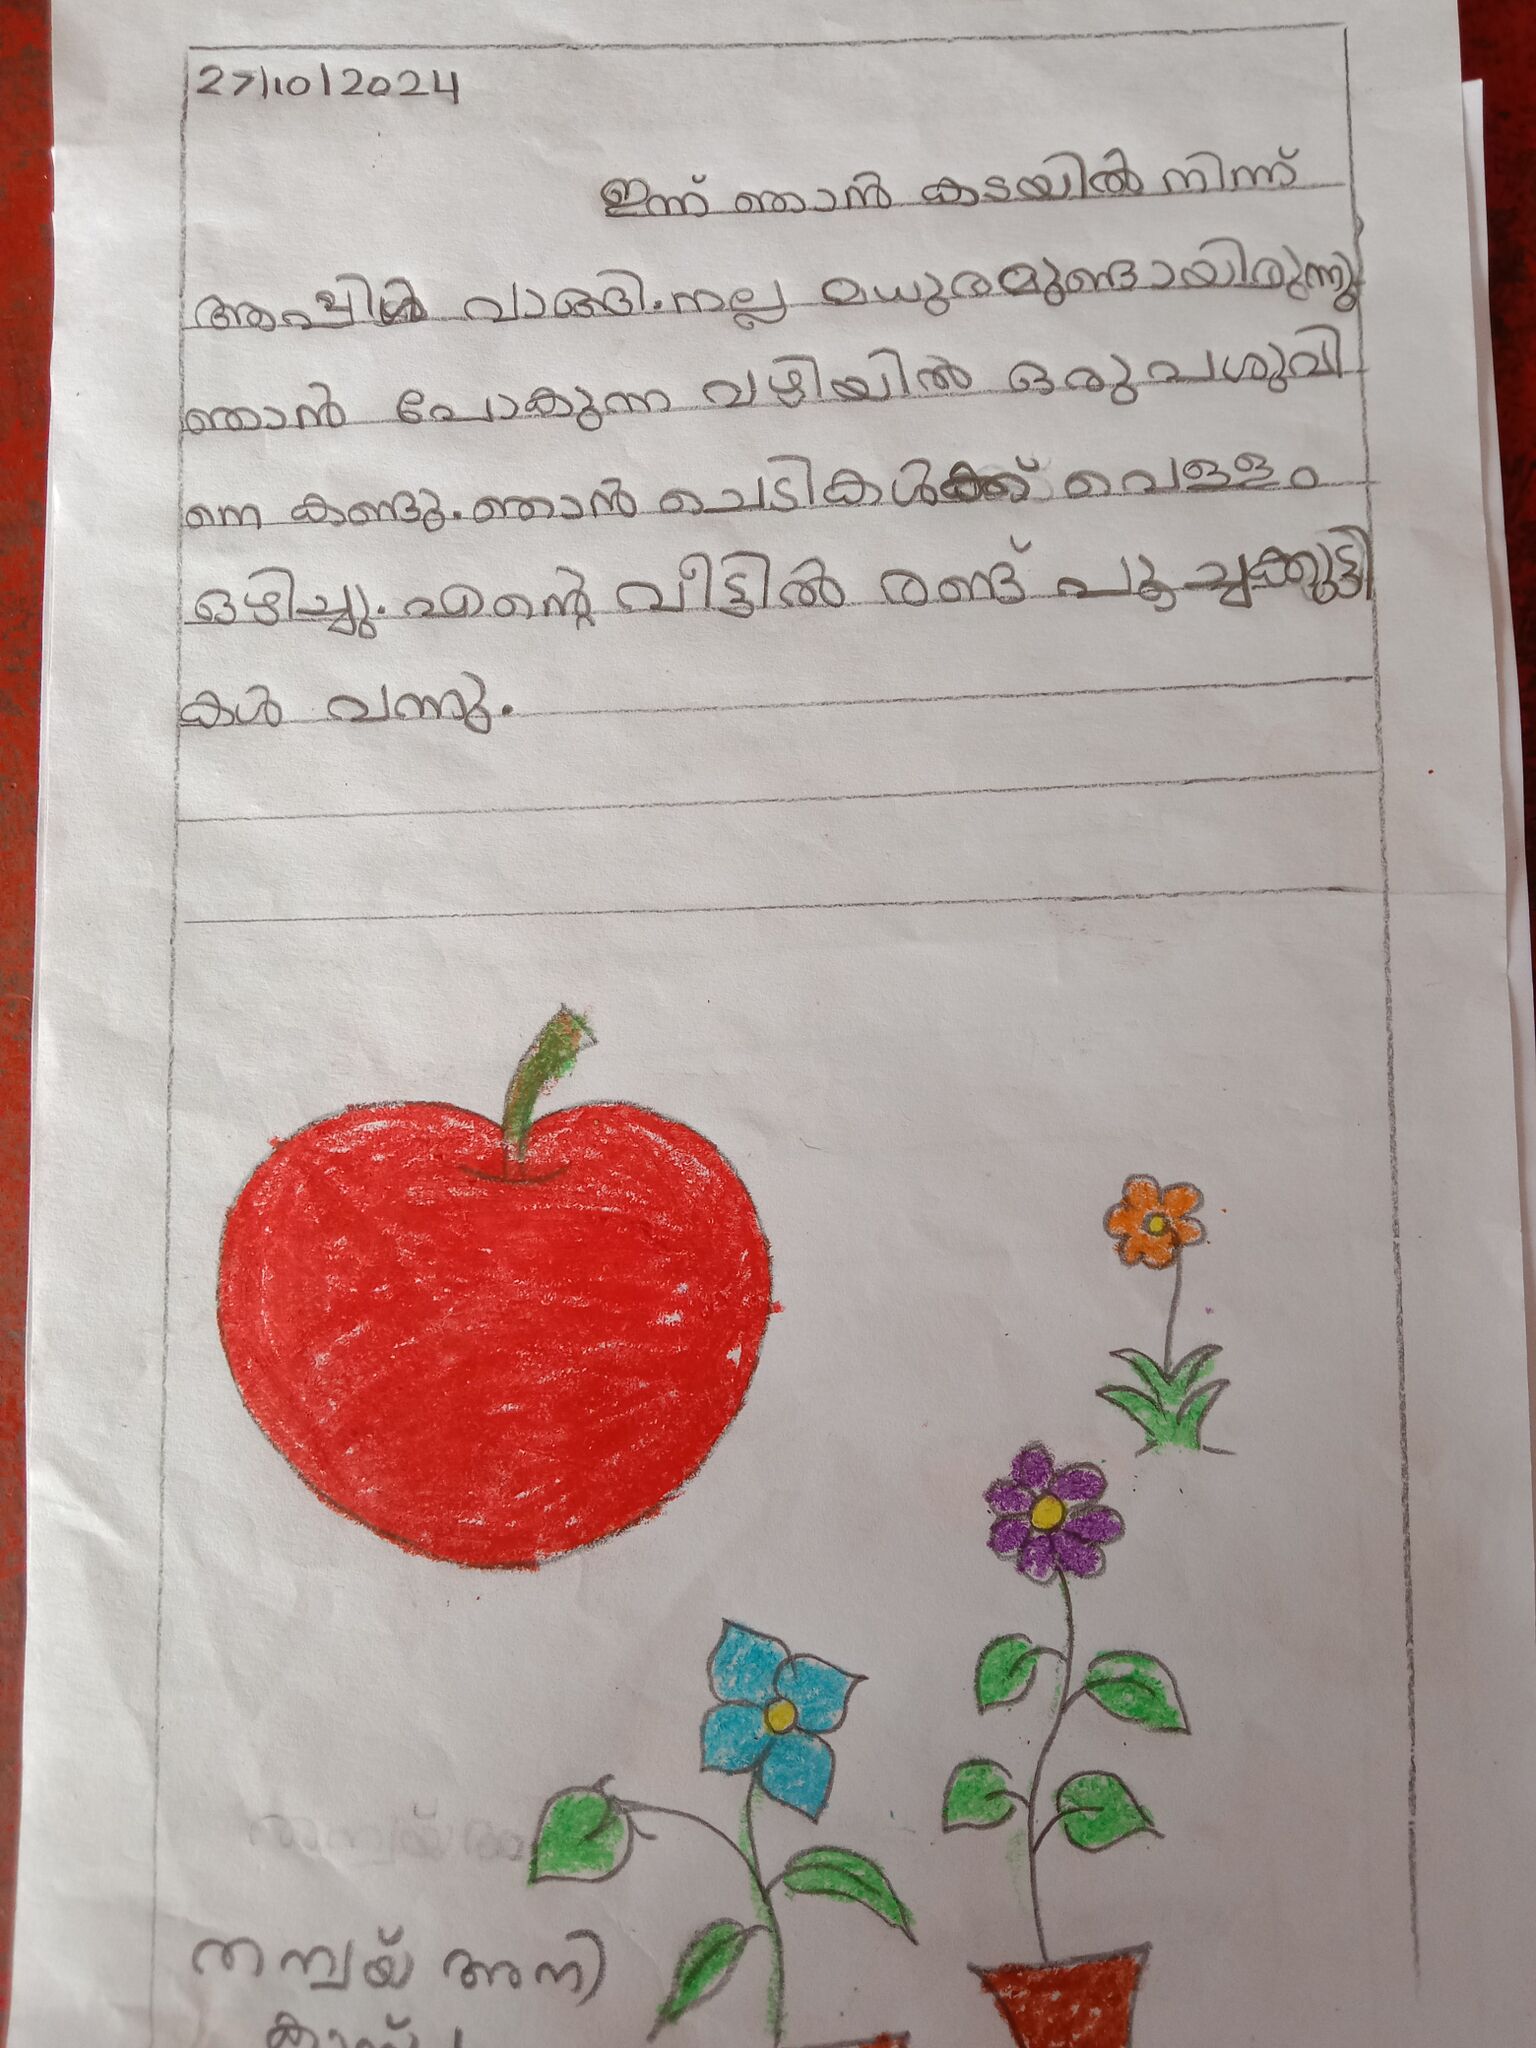 27/10/2024
ഇന്ന് ഞാൻ കടയിൽ നിന്ന്
ആപ്പിൾ വാങ്ങി. നല്ല മധുരമുണ്ടായിരുന്നു
ഞാൻ പോകുന്ന വഴിയിൽ ഒരു പശുവി
നെ കണ്ടു. ഞാൻ ചെടികൾക്ക് വെള്ളം
ഒഴിച്ചു. എന്റെ വീട്ടിൽ രണ്ട് പൂച്ചക്കുട്ടി
കൾ വന്നു.
തന്വയ് അനി